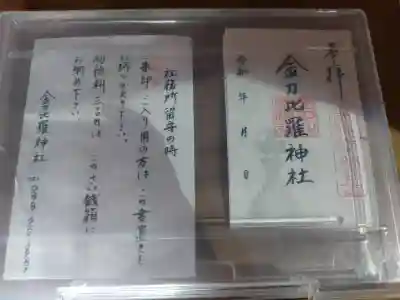 社務所留守の時
朱印ご入り用の方は この書置きを
お持ち下さい。
初穂料 三百円は このさい銭箱に
お納め下さい。
金刀比羅神社
奉拝
金刀比羅神社
令和 年 月 日